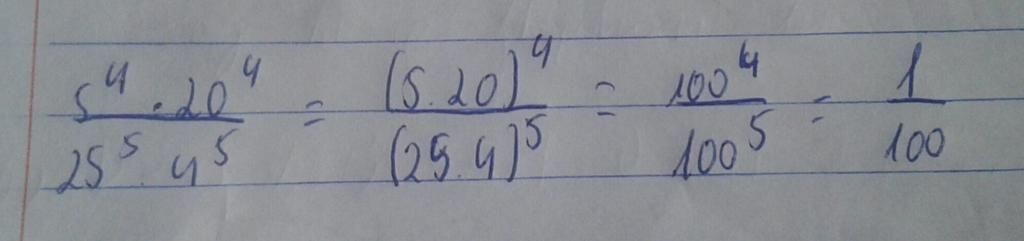 5⁴ . 20⁴ / 25⁵ . 4⁵ = (5.20)⁴ / (25.4)⁵ = 100⁴ / 100⁵ = 1 / 100